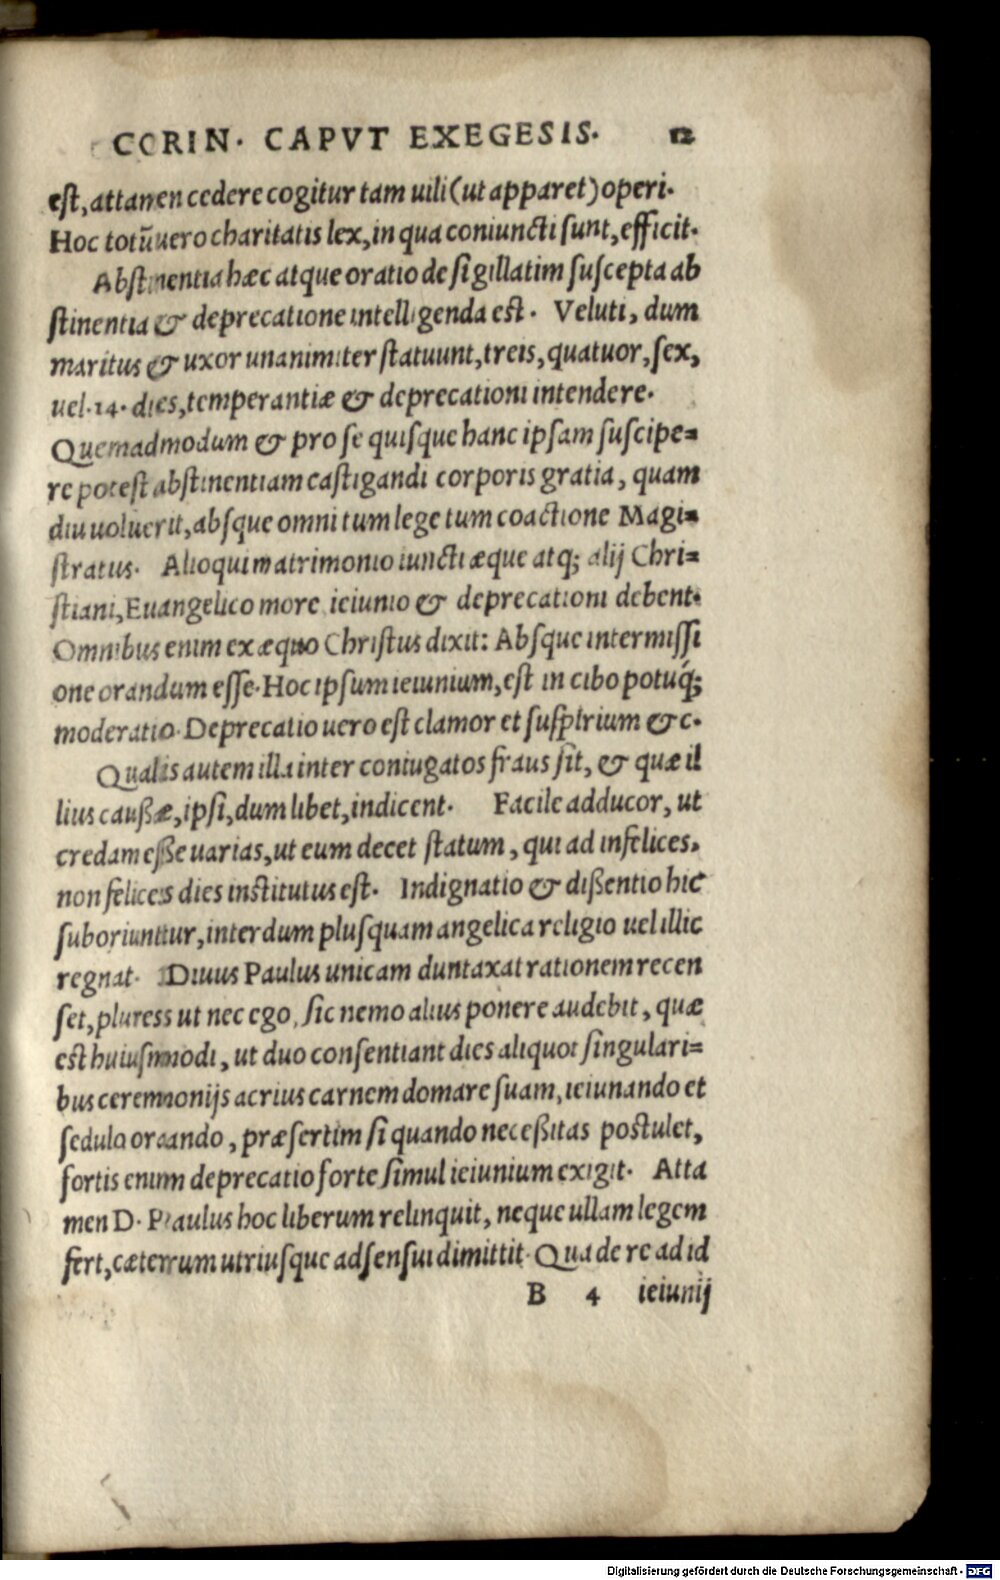 CORIN. CAPVT EXEGESIS. 12
est, attamen cedere cogitur tam uili (ut apparet) operi.
Hoc totũ uero charitatis lex, in qua coniuncti sunt, efficit.
Abstinentia hæc atque oratio de sigillatim suscepta ab
stinentia & deprecatione intelligenda est. Veluti, dum
maritus & uxor unanimiter statuunt, treis, quatuor, sex,
uel. 14. dies, temperantiæ & deprecationi intendere.
Quemadmodum & pro se quisque hanc ipsam suscipe=
re potest abstinentiam castigandi corporis gratia, quam
diu uoluerit, absque omni tum lege tum coactione Magi=
stratus. Alioqui matrimonio iuncti æque atq; alij Chri=
stiani, Euangelico more ieiunio & deprecationi debent.
Omnibus enim ex æquo Christus dixit: Absque intermissi
one orandum esse. Hoc ipsum ieiunium, est in cibo potuq́;
moderatio. Deprecatio uero est clamor et suspirium &c.
Qualis autem illa inter coniugatos fraus sit, & quæ il
lius caußæ, ipsi, dum libet, indicent. Facile adducor, ut
credam eße uarias, ut eum decet statum, qui ad infelices,
non felices dies institutus est. Indignatio & dißentio hic
suboriuntur, interdum plusquam angelica religio uel illic
regnat. Diuus Paulus unicam duntaxat rationem recen
set, pluress ut nec ego, sic nemo alius ponere audebit, quæ
est huiusmodi, ut duo consentiant dies aliquot singulari=
bus ceremonijs acrius carnem domare suam, ieiunando et
sedulo orando, præsertim si quando neceßitas postulet,
fortis enim deprecatio forte simul ieiunium exigit. Atta
men D. Paulus hoc liberum relinquit, neque ullam legem
fert, cæterum utriusque adsensui dimittit. Qua de re ad id
B 4 ieiunij
Digitalisierung gefördert durch die Deutsche Forschungsgemeinschaft - DFG